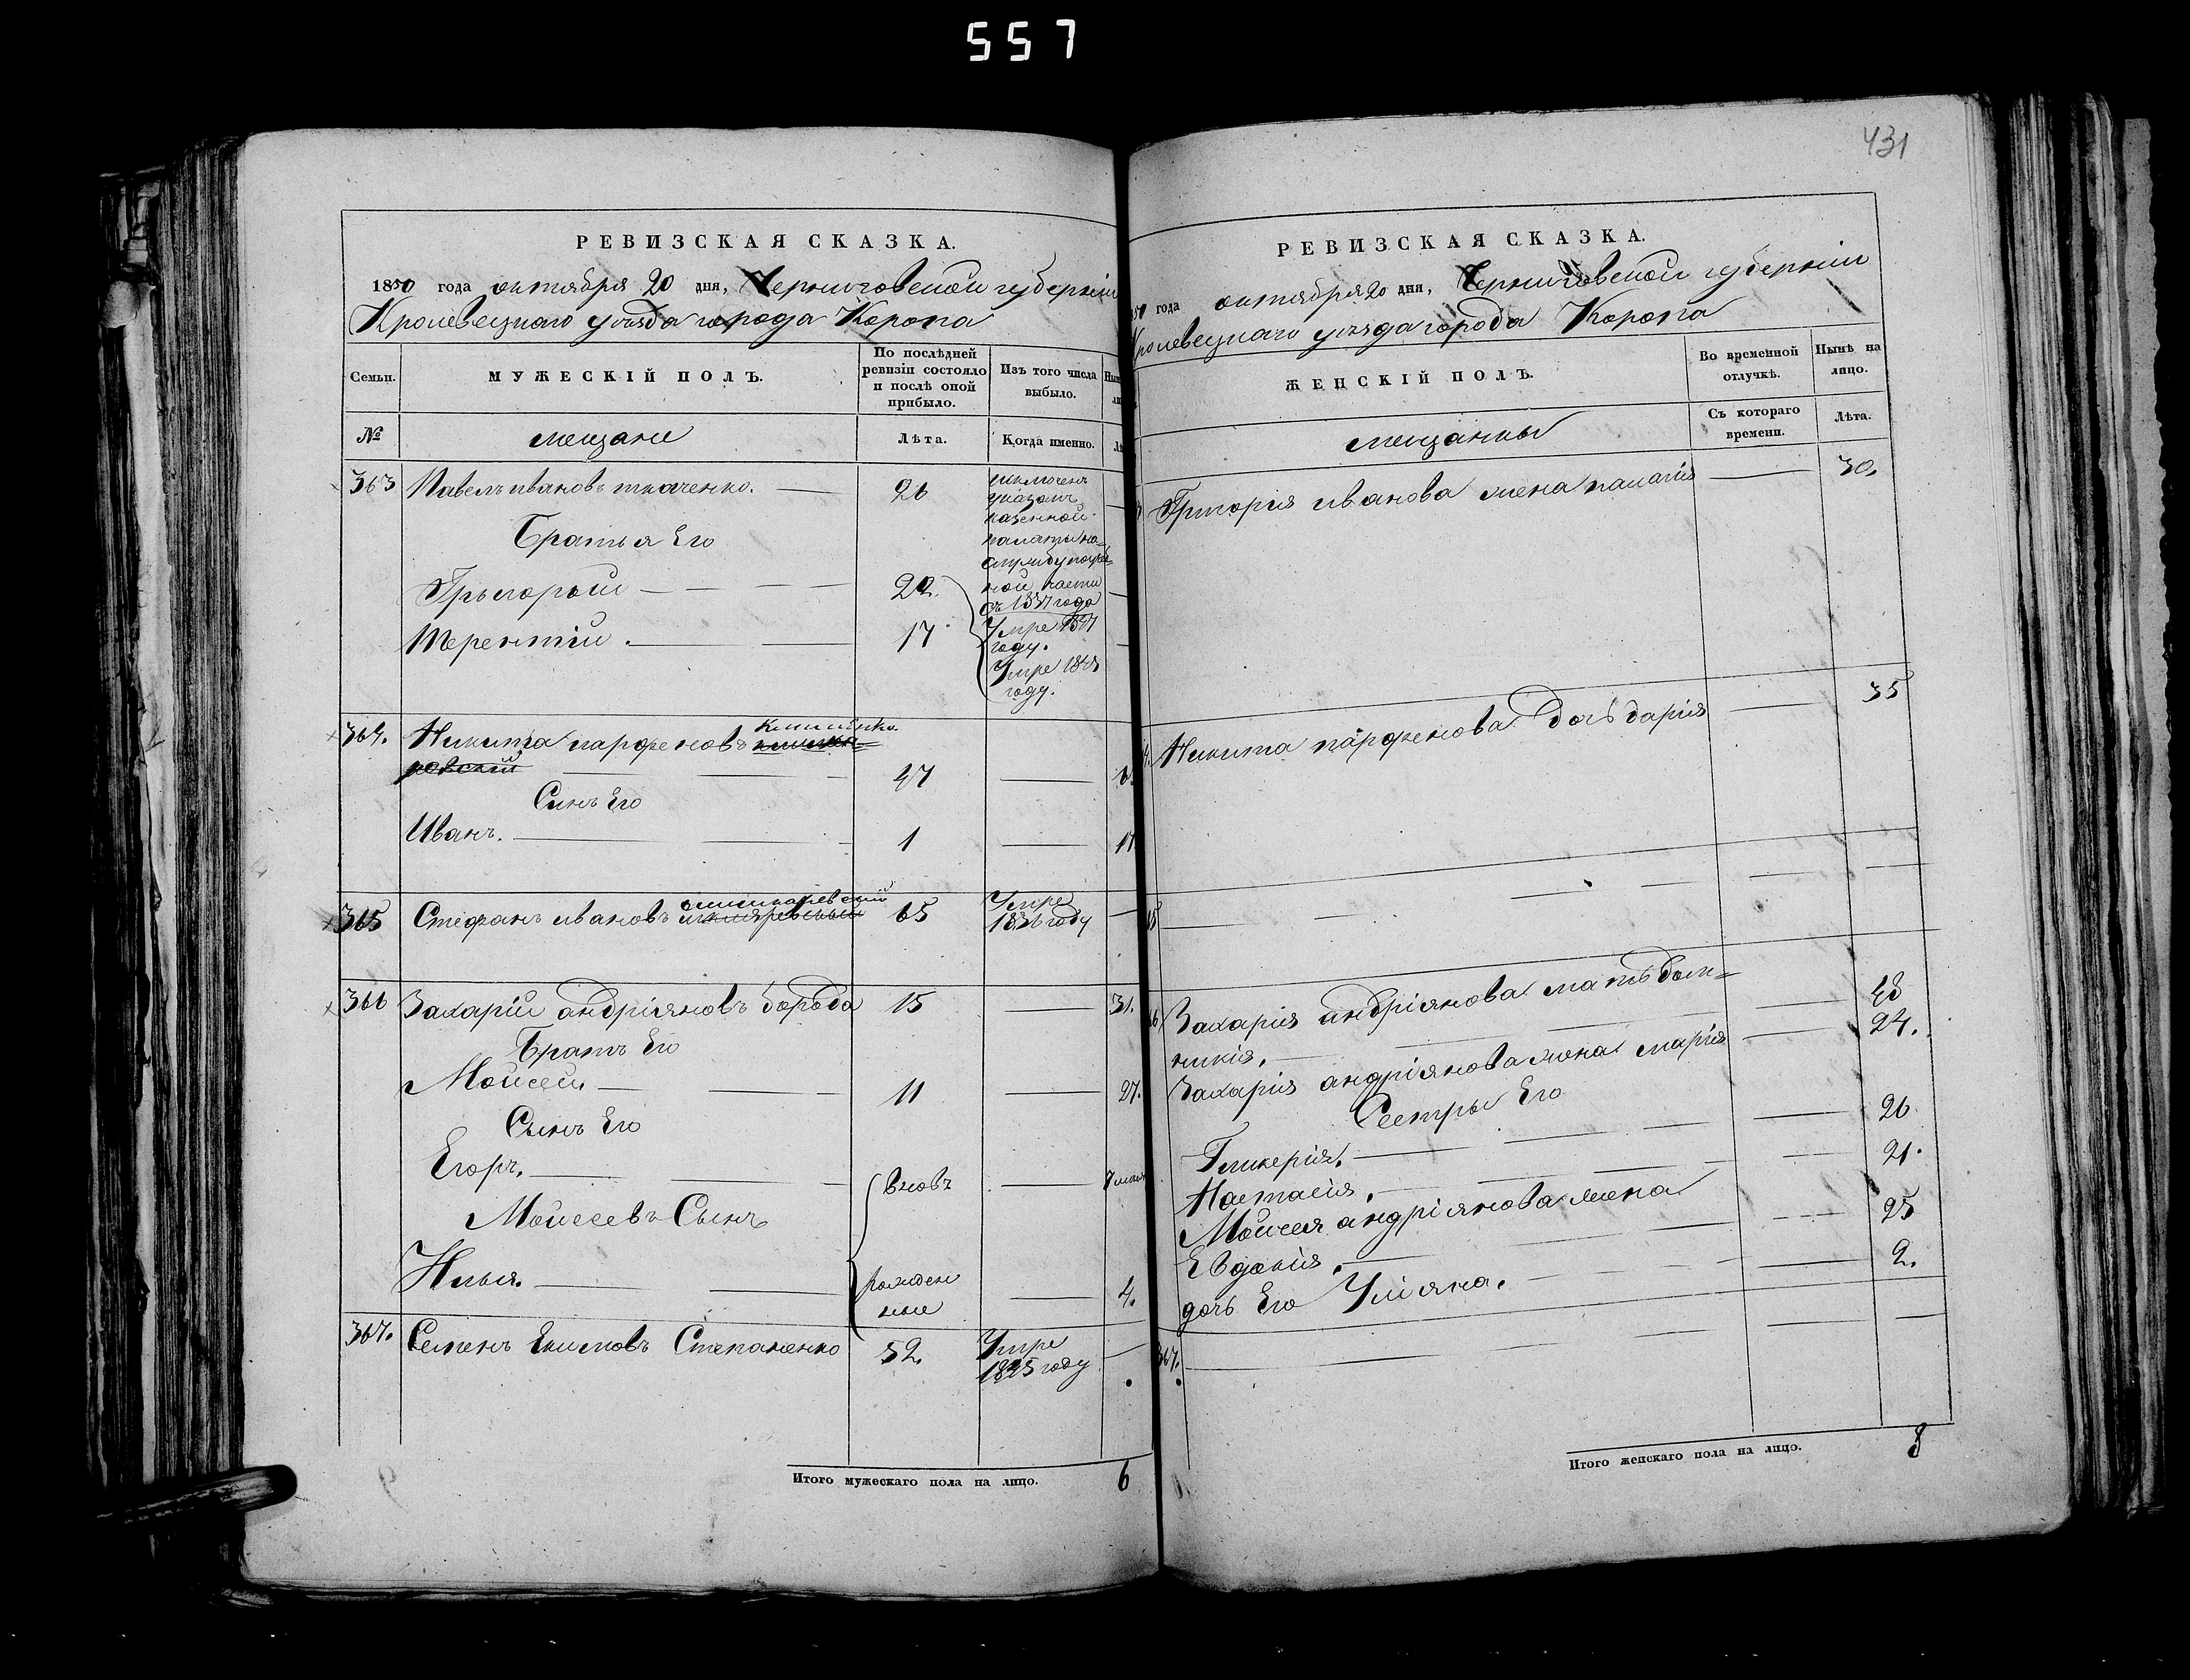 557
431
РЕВИЗСКАЯ СКАЗКА.
1850 года октября 20 дня, Черниговской губерніи
Кролевецкаго уезда города Коропа
Семьи.
МУЖЕСКІЙ ПОЛЪ.
По послѣдней ревизіи состояло и послѣ оной прибыло.
Изъ того числа выбыло.
№
мещане
Лѣта.
Когда именно.
363 Павелъ ивановъ ткаченко. 26
исключенъ
указомъ
казенной
палаты на
ной части
съ 1837 года
Братья Его
Грыгорый 22.
Терентій. 17
Умре 1847
году.
Умре 1848
году.
364. Никита парфеновъ
47
Синъ Его
Иванъ. 1 17
365 Стефанъ ивановъ 65 Умре
1836 году
366 Захарій андріяновъ борода 15 31.
Братъ Его
Мойсей 11 27.
Сынъ Его
Егоръ. вновь
Мойсеевъ Сынъ
Илья. рожден
ные 4.
367. Семенъ Екимовъ Степаненко 52. Умре
1845 году
Итого мужескаго пола на лицо. 6
РЕВИЗСКАЯ СКАЗКА.
50 года октября 20 дня, Черниговской губерніи
Кролевецкаго уезда города Коропа
ЖЕНСКІЙ ПОЛЪ.
Во временной отлучкѣ.
Нынѣ на лицо.
мещанки
Съ котораго времени.
Лѣта.
Григорія иванова жена палагія 30.
Никита парфенова дочь дарія 35
Захарія андріянова мать дом=
никія. 48
Захарія андріянова жена марія 24.
Сестры Его
Гликерія. 26
Настасія. 21.
Мойсея андріянова жена
Евдокія. 25
дочь Его Уліяна. 2.
367.
Итого женскаго пола на лицо. 8